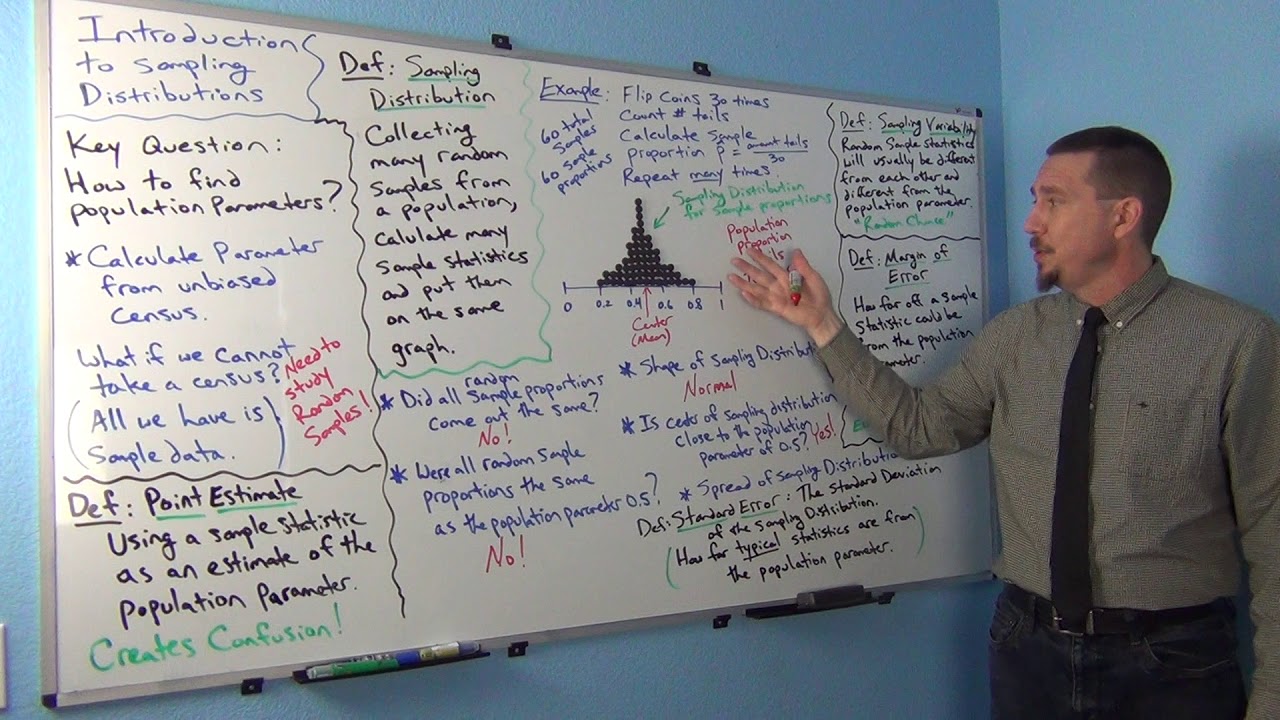 Introduction
to Sampling
Distributions
Key Question:
How to find
population Parameters?
* Calculate Parameter
from unbiased
census.
What if we cannot
take a census?
(All we have is
Sample data.)
Need to
study
Random
Samples!
Def: Point Estimate
Using a sample statistic
as an estimate of the
population Parameter.
Creates Confusion!
Def: Sampling
Distribution
Collecting
many random
samples from
a population,
calulate many
sample statistics
and put them
on the same
graph.
* Did all random sample proportions
come out the same?
No!
* Were all random sample
proportions the same
as the population parameter 0.5?
No!
Example: Flip Coins 30 times
Count # tails
Calculate sample
proportion p̂ = amount tails / 30
Repeat many times.
60 total
samples
60 sample
proportions
Sampling Distribution
for sample proportions
Population
proportion
0 0.2 0.4 0.6 0.8 1
Center
(Mean)
* Shape of sampling
Normal
* Is center of sampling distribution
close to the population
parameter of 0.5? Yes!
* Spread of Sampling
Def: Standard Error: The standard Deviation
of the sampling Distribution.
(How far typical statistics are from
the population parameter.)
Def: Sampling Variability
Random Sample statistics
will usually be different
from each other and
different from the
population parameter.
"Random Chance"
Def: Margin of
Error
How far off a sample
statistic could be
from the population
parameter.